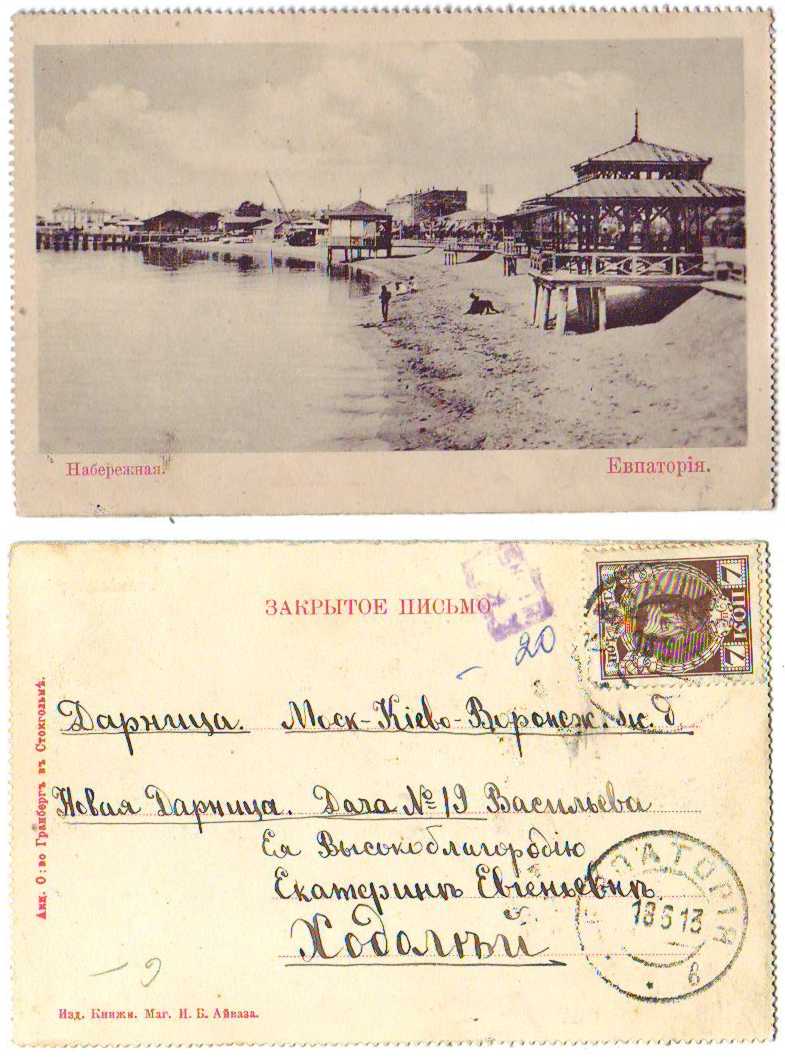 Набережная.
Евпаторія.
ЗАКРЫТОЕ ПИСЬМО
20
7
КОП
7
Дарница. Моск-Кіево-Воронеж. ж. д
Новая Дарница. Дача № 19 Васильева
Ея Высокоблагородію
Екатеринѣ Евгеньевнѣ
Ходолѣй
ЕВПАТОРІЯ
18 6 13
в
9
Акц. О:во Гранбергъ въ Стокгольмѣ.
Изд. Книжн. Маг. И. Б. Айваза.